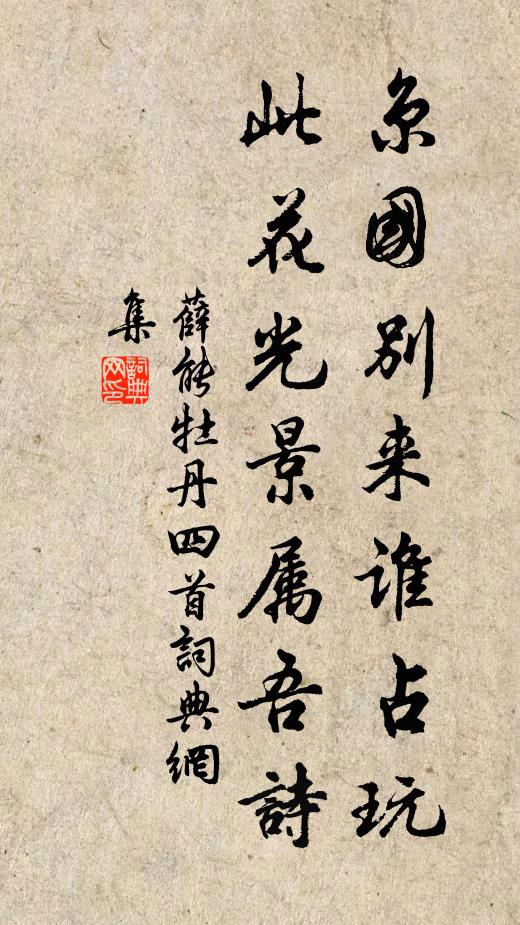 京國別来誰占玩
此花光景属吾詩
薛能牡丹四首詞典網
集
詞典
网印